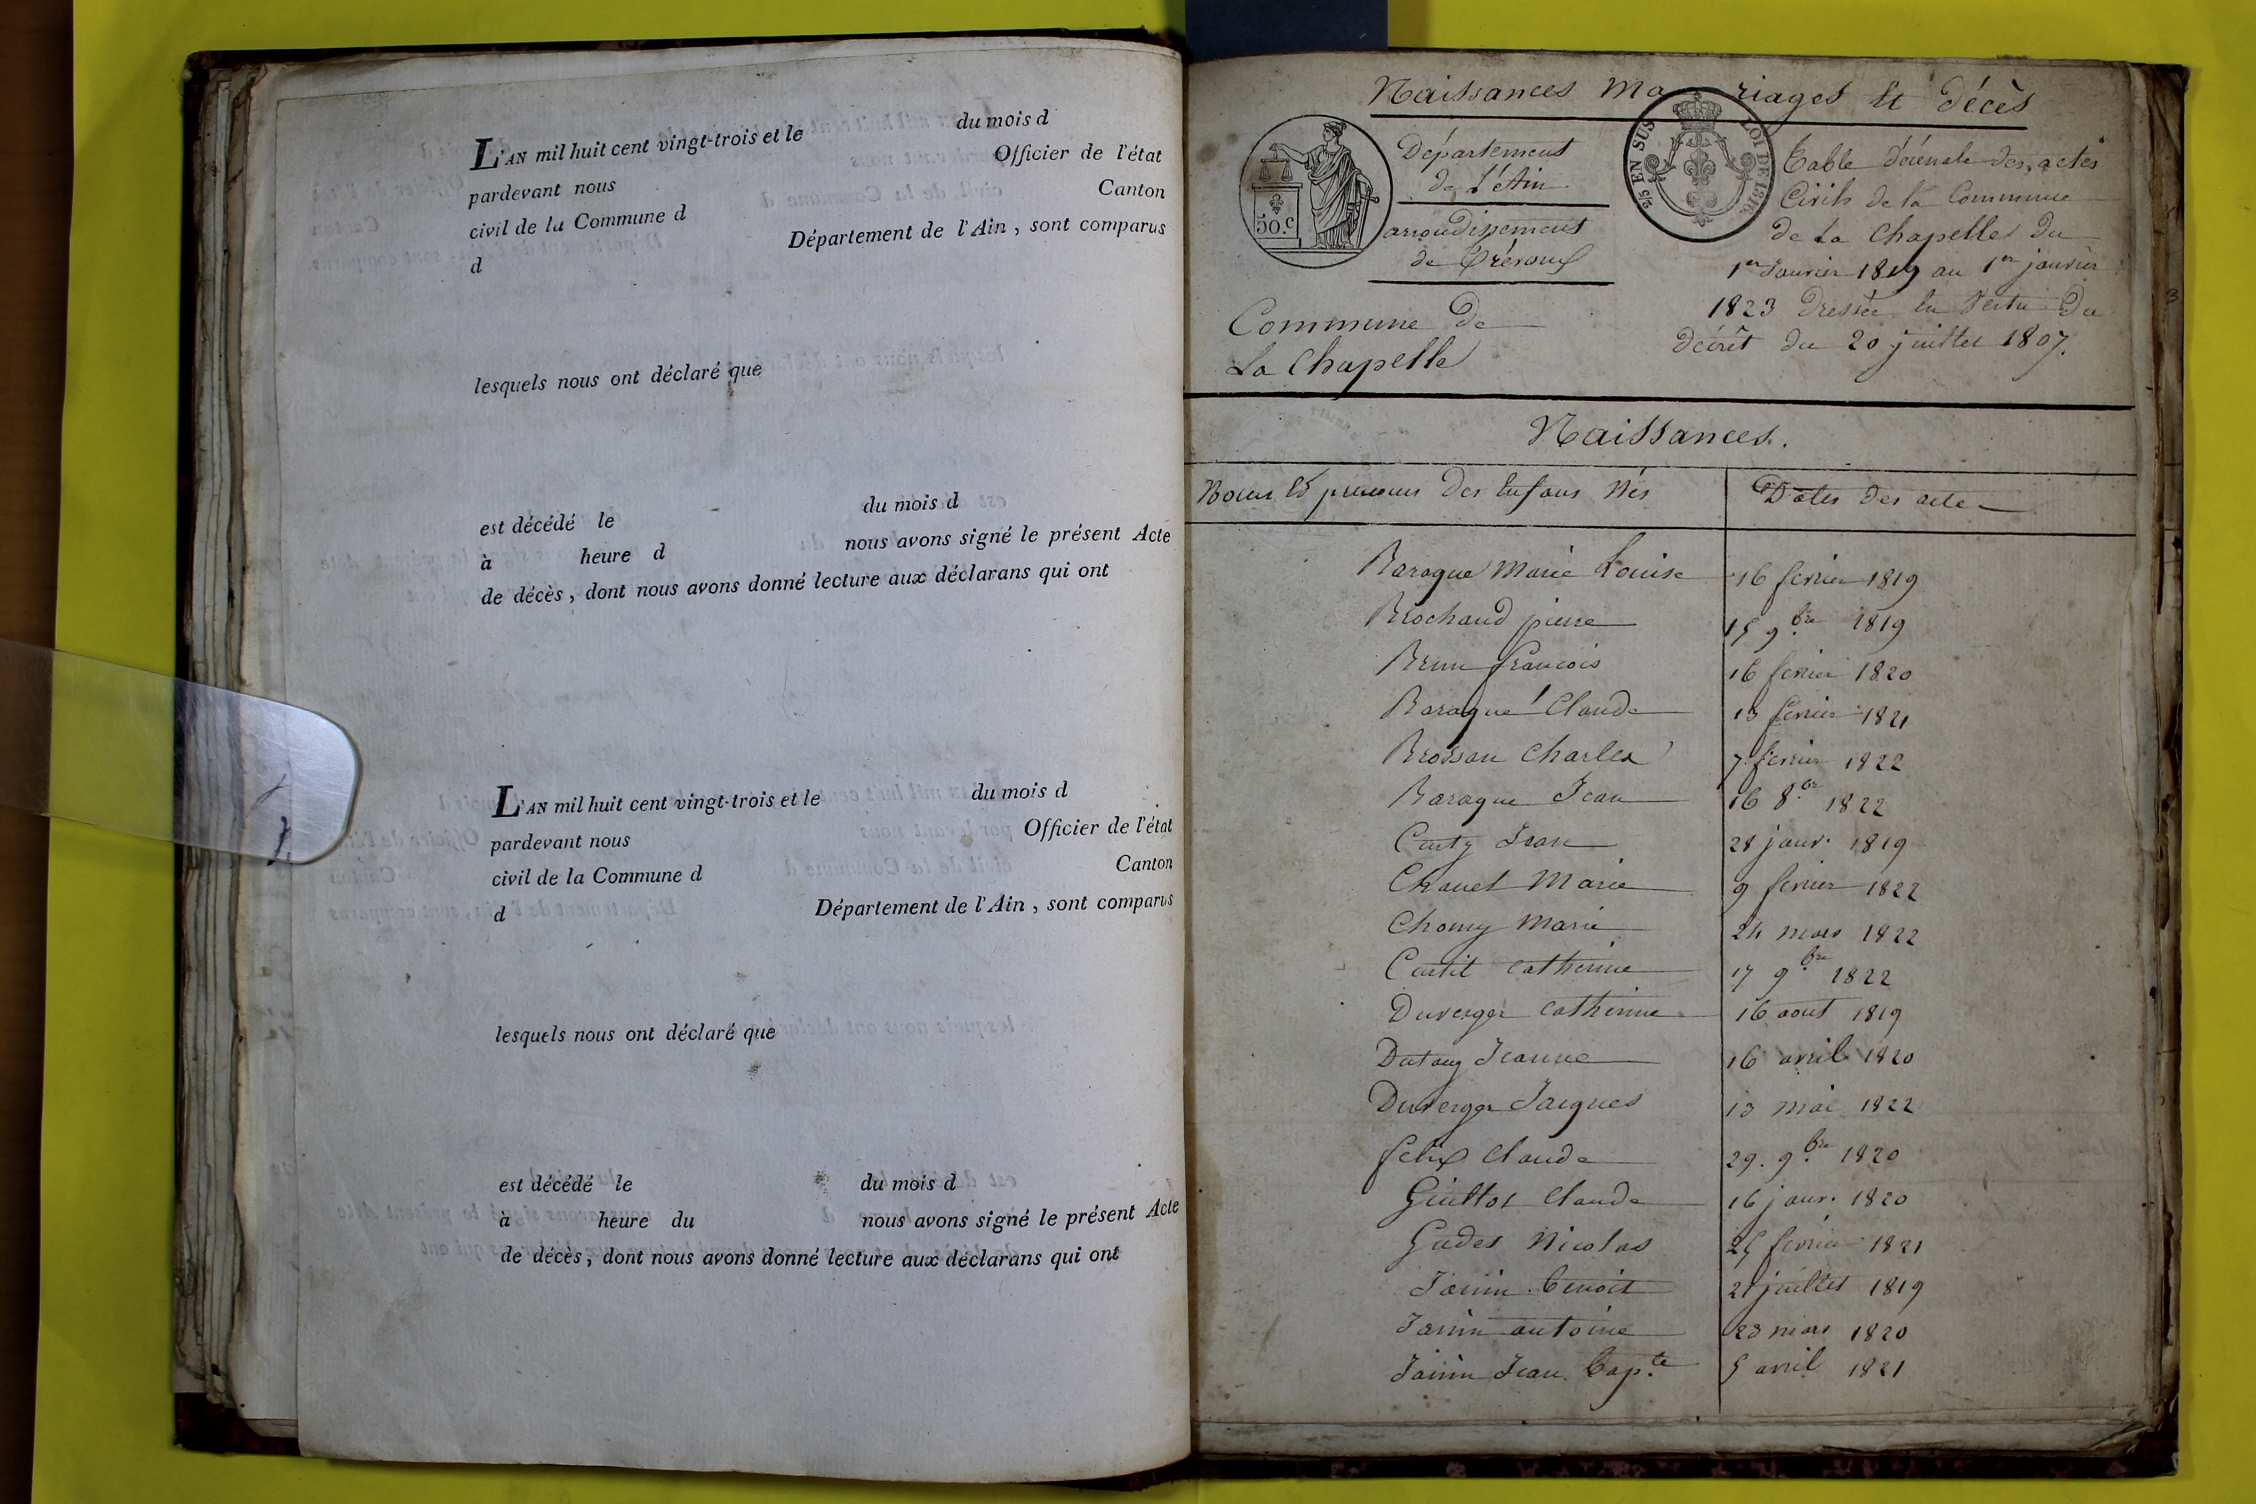 L'AN mil huit cent vingt-trois et le du mois d
pardevant nous Officier de l'état
civil de la Commune d Canton
d Département de l'Ain, sont comparus
lesquels nous ont déclaré que
est décédé le du mois d
à heure d nous avons signé le présent Acte
de décès, dont nous avons donné lecture aux déclarans qui ont
L'AN mil huit cent vingt-trois et le du mois d
pardevant nous Officier de l'état
civil de la Commune d Canton
d Département de l'Ain, sont comparus
lesquels nous ont déclaré que
est décédé le du mois d
à heure du nous avons signé le présent Acte
de décès, dont nous avons donné lecture aux déclarans qui ont
Naissances Mariages et Décès
50.C
Département
de L'Ain
arrondissement
de Trévoux
Commune de
La Chapelle
2/5 EN SUS LOI DE 1816.
Table décénale des actes
Civils de la Commune
de La Chapelle du
1er Janvier 1819 au 1er janvier
1823 Dressée en Vertu du
décrêt du 20 juillet 1807.
Naissances.
Noms et prenoms des Enfans Nés Dates des actes
Baraque Marie Louise 16 fevrier 1819
Brochand pierre 15 9bre 1819
Brun francois 16 fevrier 1820
Baraque Claude 13 fevrier 1821
Brossau Charles 7 fevrier 1822
Baraque Jean 16 8bre 1822
Curty Jean 28 janv. 1819
Chanel Marie 9 fevrier 1822
Chomy Marie 24 mars 1822
Curtil Catherine 17 9bre 1822
Duverger Catherine 16 aout 1819
Dutang Jeanne 16 avril 1820
Duverger Jacques 13 mai 1822
felix Claude 29. 9bre 1820
Guillot Claude 16 janv. 1820
Gudet Nicolas 25 fevrier 1821
Janin Benoit 21 juillet 1819
Janin antoine 23 mars 1820
Janin Jean Bapte 5 avril 1821